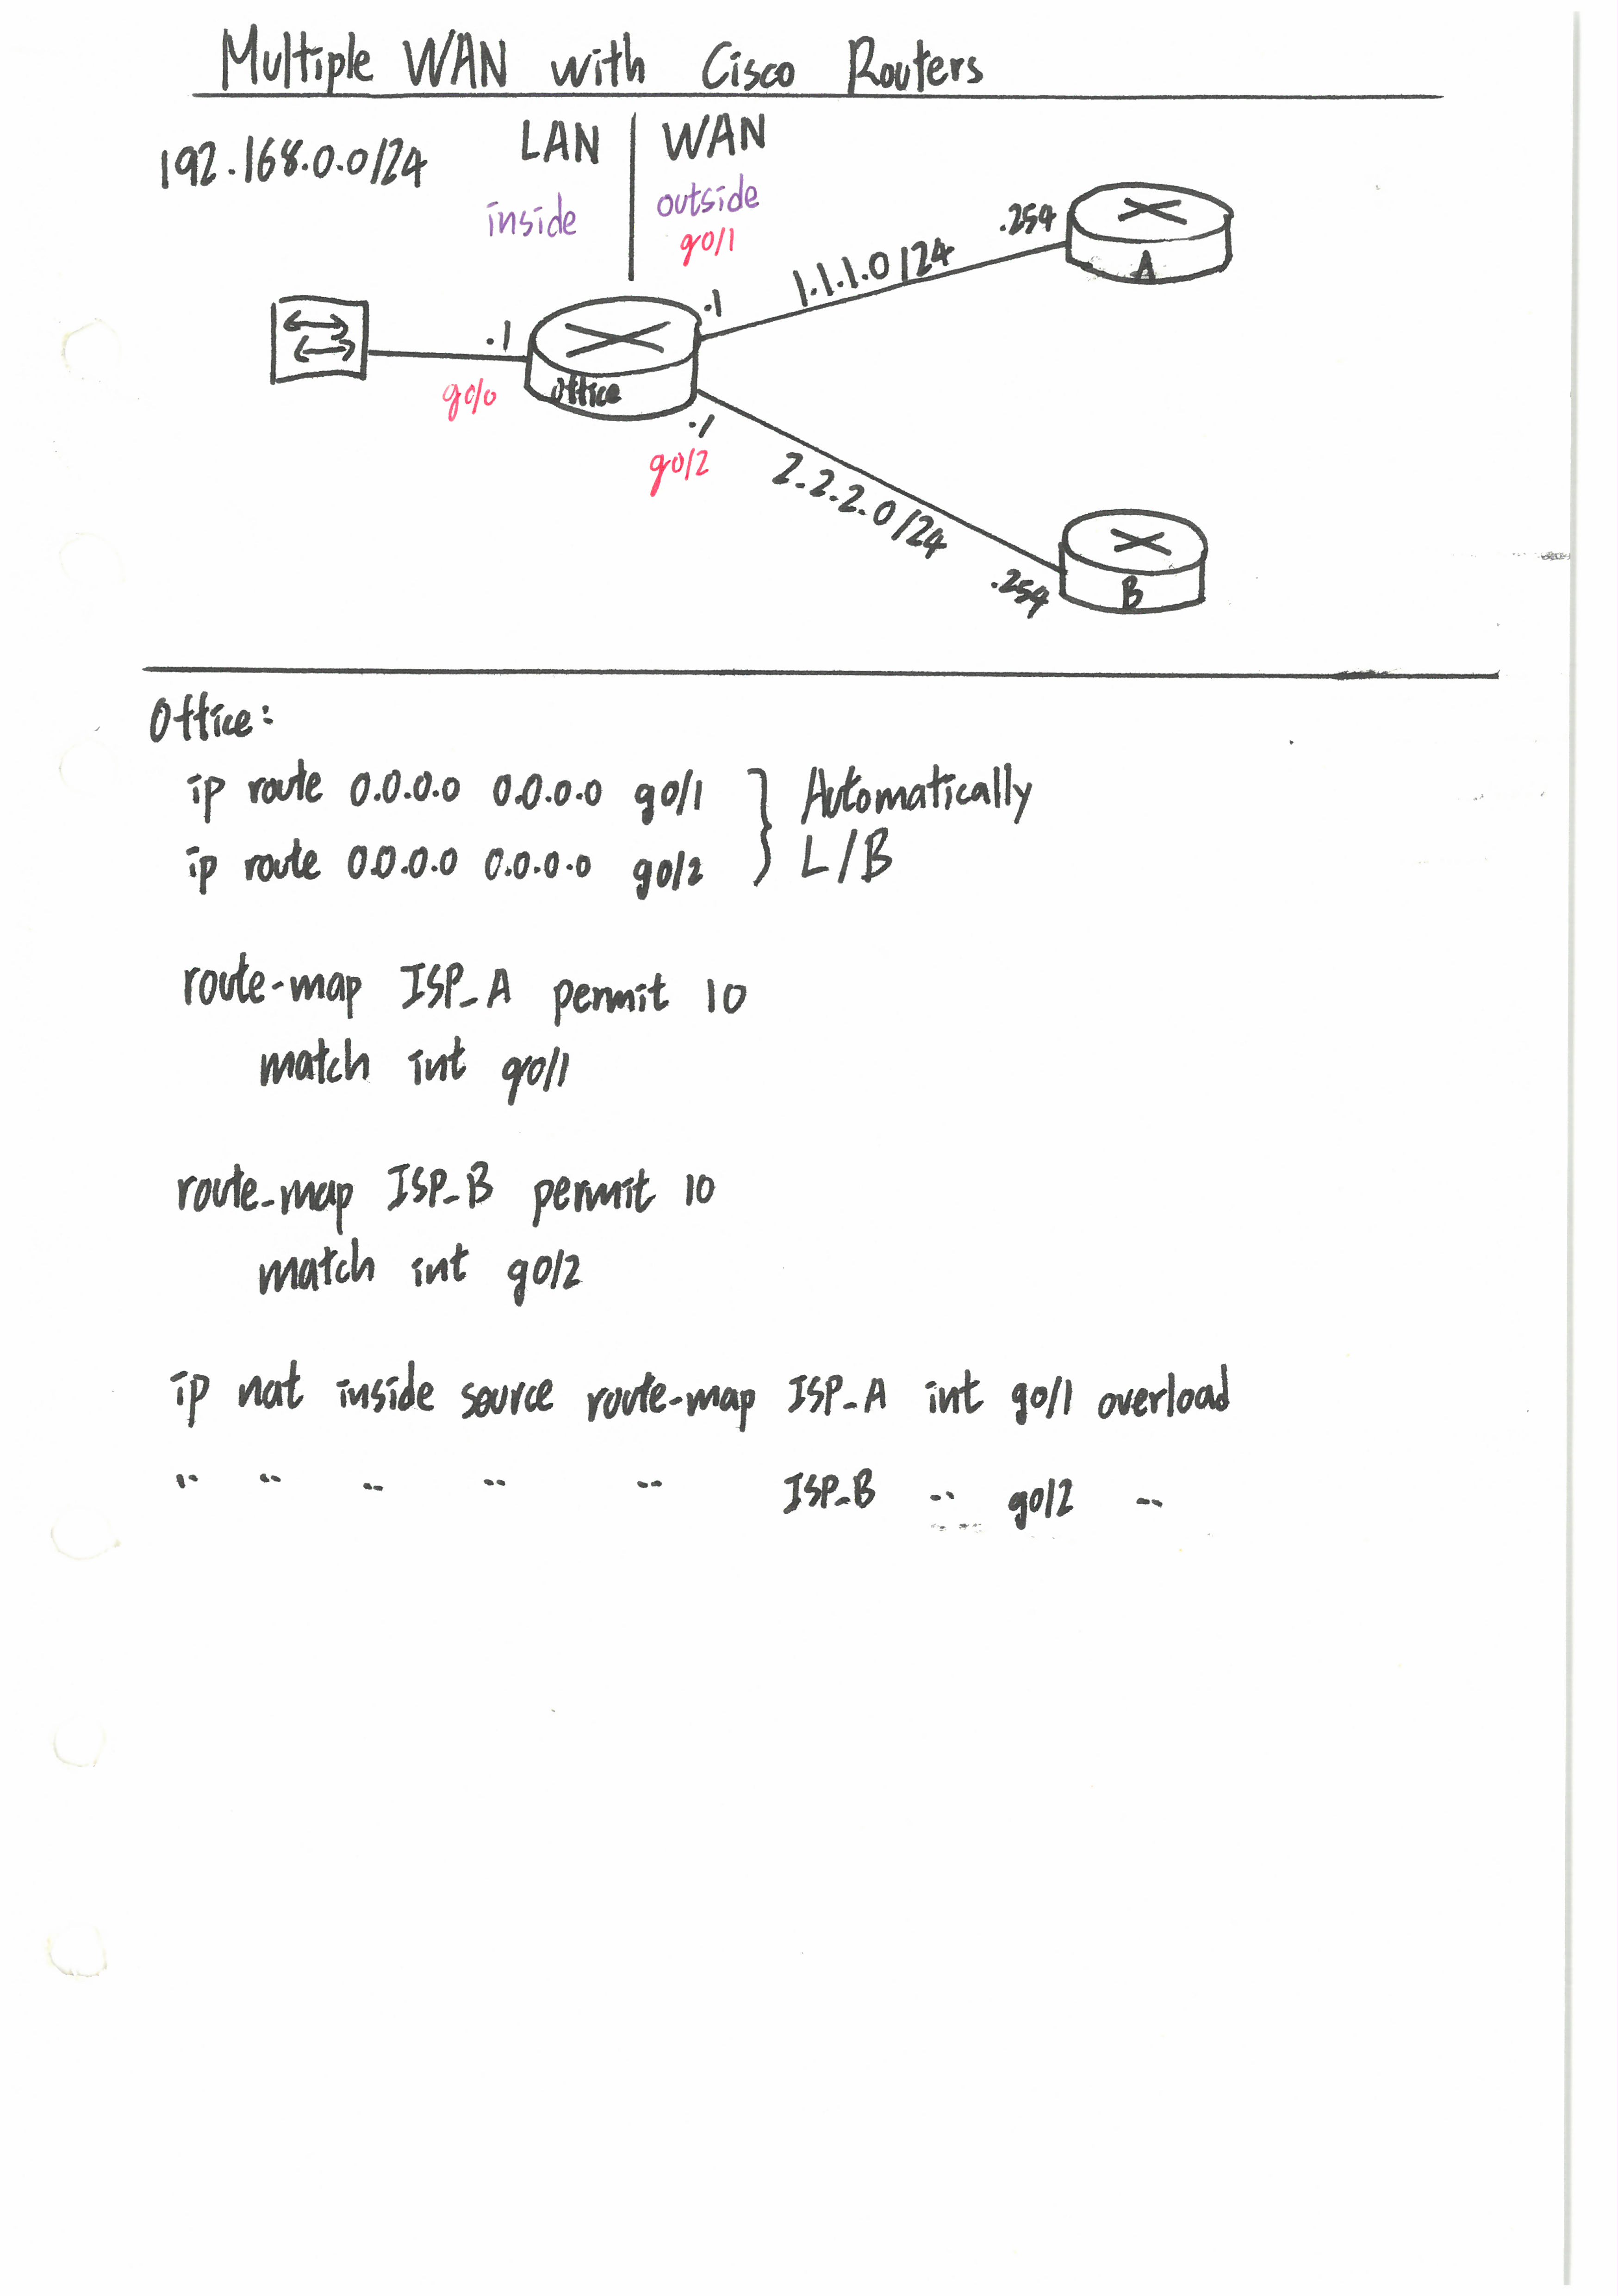 Multiple WAN with Cisco Routers
192.168.0.0/24
LAN
WAN
inside
outside
g0/1
.254
A
1.1.1.0/24
.1
.1
office
g0/0
.1
g0/2
2.2.2.0/24
.254
B
Office:
ip route 0.0.0.0 0.0.0.0 g0/1
ip route 0.0.0.0 0.0.0.0 g0/2
Automatically
L/B
route-map ISP_A permit 10
match int g0/1
route-map ISP_B permit 10
match int g0/2
ip nat inside source route-map ISP_A int g0/1 overload
" " " " " ISP_B " g0/2 "